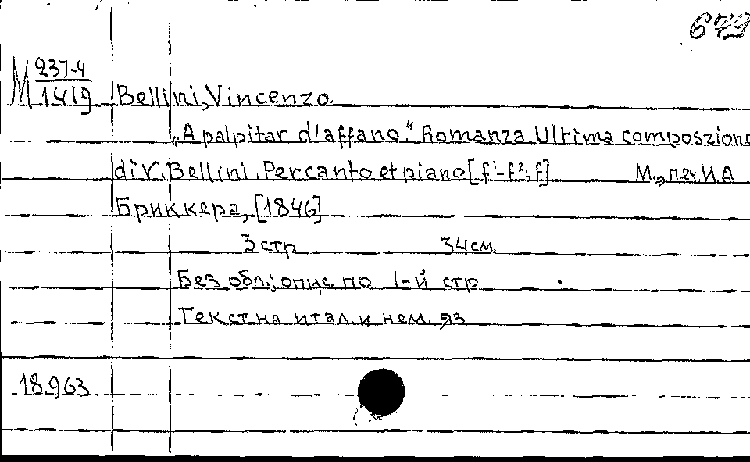 679
М 237-4
1419 Bellini, Vincenzo
„A palpitar d'affano." Romanza. Ultima composzione
di V. Bellini. Per canto et piano [f¹-f²; f] М., печ. И.А.
Бриккера, [1846]
3 стр 34 см.
Без обл.; опис по 1-й стр
Текст на итал. и нем. яз
18.963